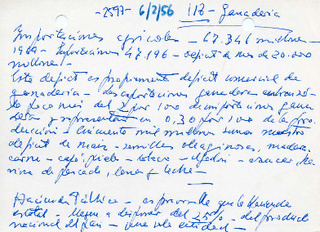 -2597- 6/2/56 112- Ganadería
Importaciones agricolas - 67.346 millones -
1964- Exportaciones 47.196 - deficit de mas de 20.000
millones -
Este deficit es propiamente deficit comercial de
ganaderia - las exportaciones ganaderas
poco mas del 2 por 100 de importaciones gana
deras y un 0,30 por 100 de la pro
ducción - Cincuenta mil millones suma nuestro
deficit de maiz - semillas oleaginosas, madera,
carne - café, pieles - tabaco - algodon - azucar, ha
rina de pescado, lanas y leche -
Hacienda Pública - es que la Hacienda
estatal - llegue a del 25% - del producto
nacional del pais -